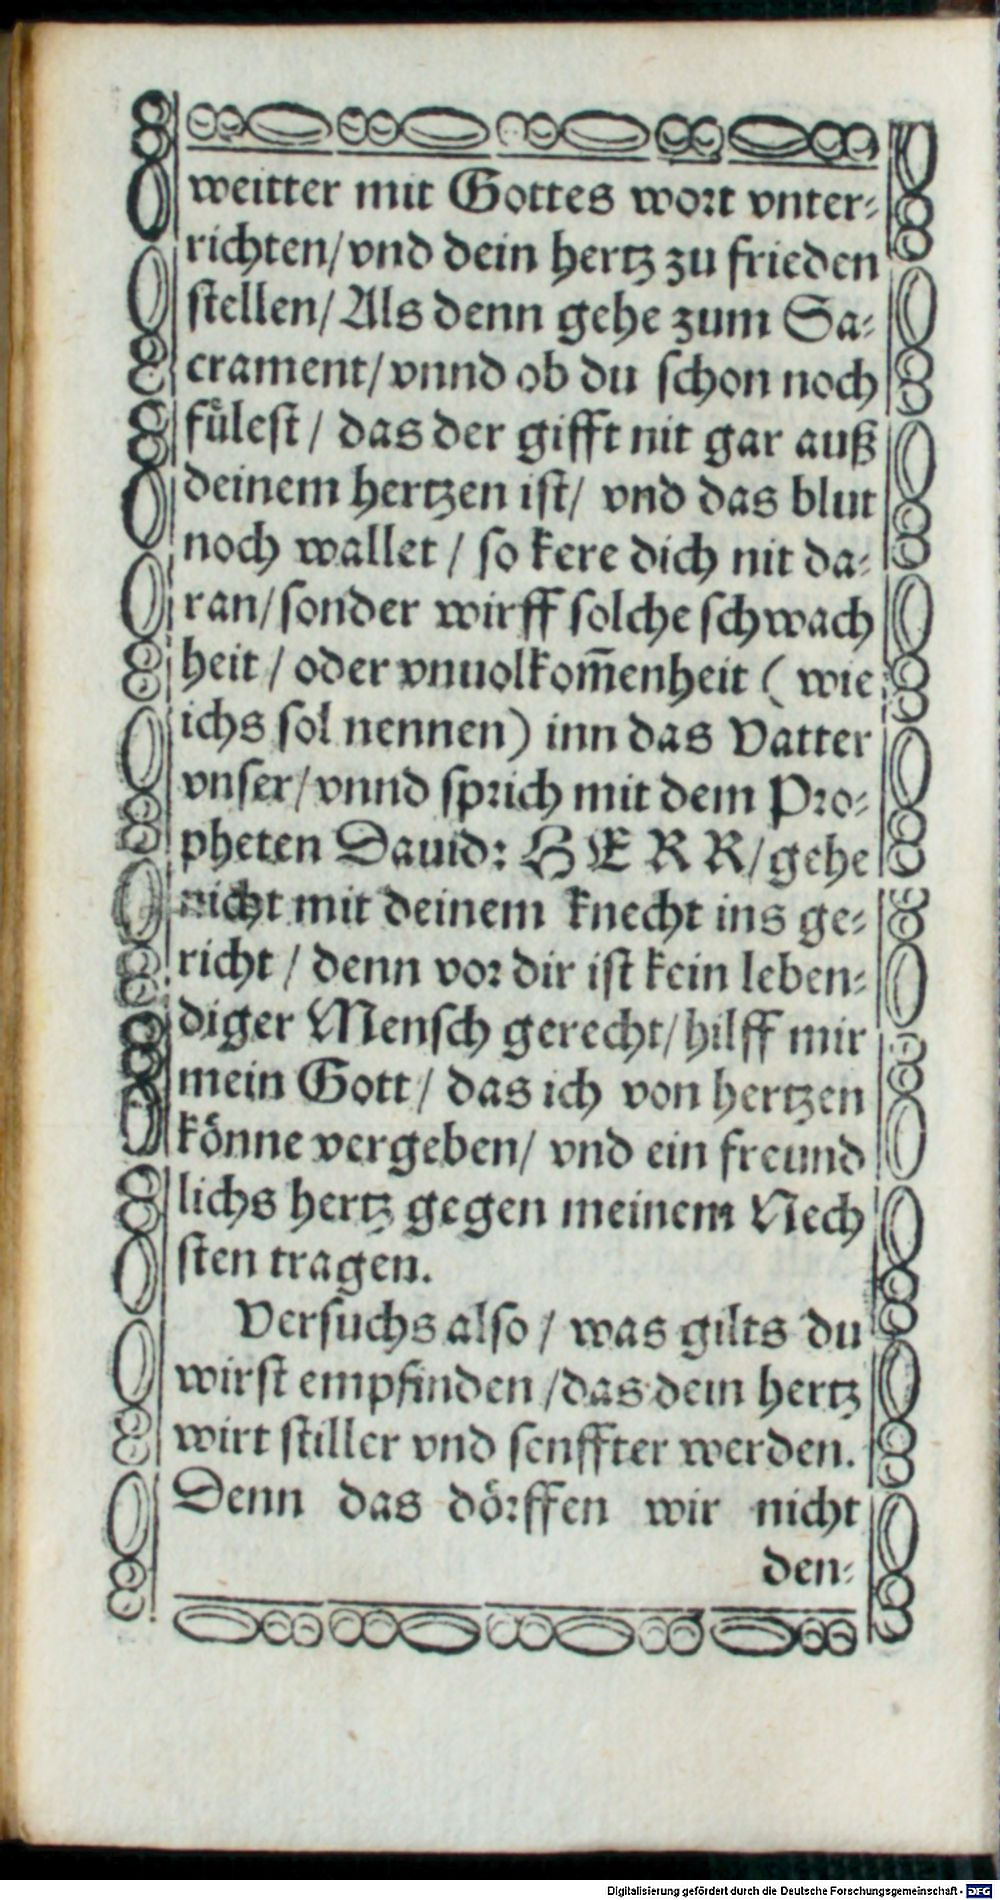 weitter mit Gottes wort vnter-
richten/vnd dein hertz zu frieden
stellen/Als denn gehe zum Sa-
crament/vnnd ob du schon noch
fuͤlest / das der gifft nit gar auß
deinem hertzen ist/ vnd das blut
noch wallet / so kere dich nit da-
ran/sonder wirff solche schwach
heit / oder vnuolkom̄enheit ( wie
ichs sol nennen) inn das Vatter
vnser/vnnd sprich mit dem Pro-
pheten Dauid: HERR/gehe
nicht mit deinem knecht ins ge-
richt / denn vor dir ist kein leben-
diger Mensch gerecht/hilff mir
mein Gott/ das ich von hertzen
koͤnne vergeben/ vnd ein freund
lichs hertz gegen meinem Nech
sten tragen.
Versuchs also / was gilts du
wirst empfinden /das dein hertz
wirt stiller vnd senffter werden.
Denn das doͤrffen wir nicht
den-
Digitalisierung gefördert durch die Deutsche Forschungsgemeinschaft - DFG